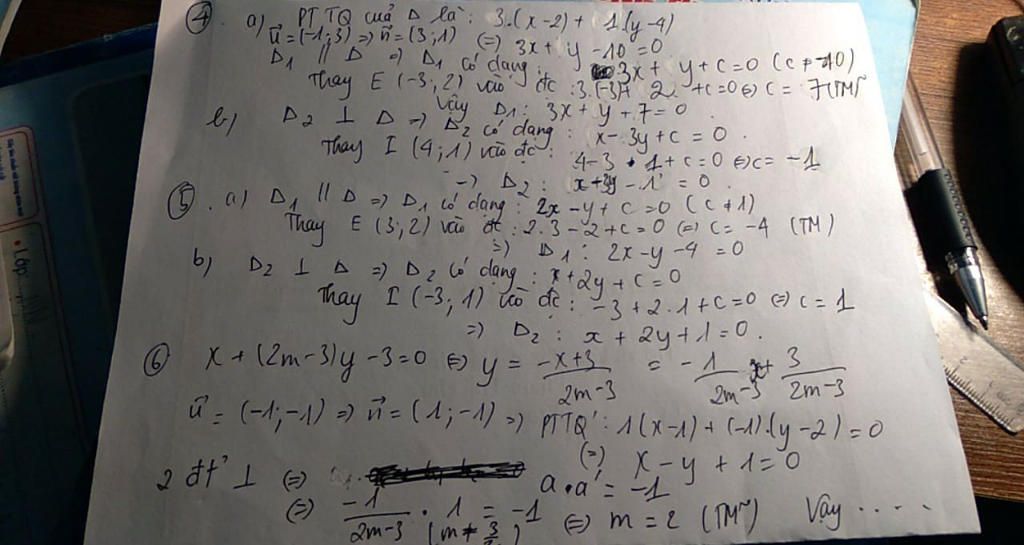 ④ a) PTTQ của Δ là: 3.(x-2) + 1.(y-4)
u⃗ = (-1;3) => n⃗ = (3;1) (=) 3x + y - 10 = 0
Δ1 // Δ => Δ1 có dạng: 3x + y + c = 0 (c ≠ -10)
Thay E (-3; 2) vào đc: 3.(-3) + 2 + c = 0 (=) c = 7 (TM)
Vậy Δ1: 3x + y + 7 = 0
b) Δ2 ⊥ Δ => Δ2 có dạng: x - 3y + c = 0.
Thay I (4; 1) vào đc: 4 - 3 . 1 + c = 0 (=) c = -1
=> Δ2: x + 3y - 1 = 0.
⑤. a) Δ1 // Δ => Δ1 có dạng: 2x - y + c = 0 (c ≠ 1)
Thay E (3; 2) vào đc: 2.3 - 2 + c = 0 (=) c = -4 (TM)
=) Δ1: 2x - y - 4 = 0
b) Δ2 ⊥ Δ => Δ2 có dạng: x + 2y + c = 0
Thay I (-3; 1) vào đc: -3 + 2.1 + c = 0 (=) c = 1
=) Δ2: x + 2y + 1 = 0.
⑥ x + (2m-3)y - 3 = 0 (=) y = (-x+3)/(2m-3) = -1/(2m-3) x + 3/(2m-3)
u⃗ = (-1; -1) => n⃗ = (1; -1) => PTTQ: 1(x-1) + (-1).(y-2) = 0
(=) x - y + 1 = 0
2 đt ⊥ (=) a.a' = -1
(=) -1/(2m-3) . 1 = -1 (m ≠ 3/2) (=) m = 2 (TM) Vậy . . . .